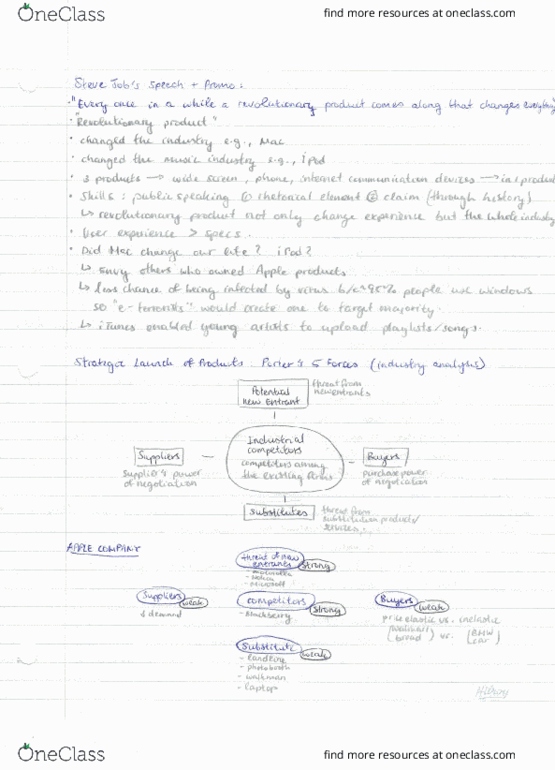 OneClass find more resources at oneclass.com
Steve Job's speech + Promo:
· "Every once in a while a revolutionary product comes along that changes everything
· "Revolutionary product"
· changed the industry e.g., Mac
· changed the music industry e.g., iPod
· 3 products → wide screen, phone, internet communication devices → in 1 product
· Skills : public speaking ① rhetorical element ② claim (through history)
↳ revolutionary product not only change experience but the whole industry
· User experience > specs.
· Did Mac change our life? iPod?
↳ envy others who owned Apple products
↳ less chance of being infected by virus b/c ~95% people use windows
so "e-terrorists" would create one to target majority.
↳ iTunes enabled young artists to upload playlists/songs.
Strategic Launch of Products: Porter's 5 Forces (industry analysis)
Potential new Entrant
threat from new entrants
Industrial competitors
competitors among the existing firms
Suppliers
supplier's power of negotiation
Buyers
purchase power of negotiation
Substitutes
threat from substitution products/ services.
APPLE COMPANY
threat of new entrants strong
- motorolla
- nokia
- microsoft
Suppliers weak
competitors strong
- blackberry
Buyers weak
price elastic vs. inelastic
vs.
bread
BMW car
Substitute weak
- landline
- photobooth
- walkman
- laptop
Hilary
OneClass find more resources at oneclass.com